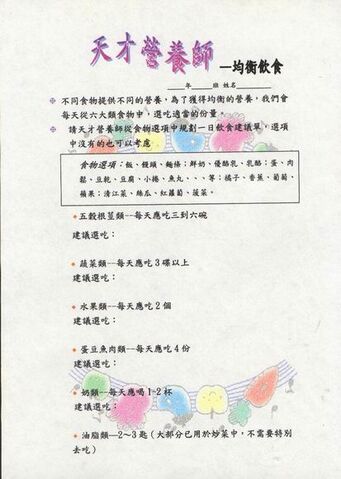 天才營養師 —均衡飲食
____年____班 姓名________
不同食物提供不同的營養，為了獲得均衡的營養，我們會
每天從六大類食物中，選吃適當的份量。
請天才營養師從食物選項中規劃一日飲食建議單，選項
中沒有的也可以考慮
食物選項：飯、饅頭、麵條；鮮奶、優酪乳、乳酪；蛋、肉
鬆、豆乾、豆腐、小捲、魚丸、、、等；橘子、香蕉、葡萄、
蘋果；清江菜、絲瓜、紅蘿蔔、菠菜。
五穀根莖類--每天應吃三到六碗
建議選吃：
蔬菜類--每天應吃3碟以上
建議選吃：
水果類--每天應吃2個
建議選吃：
蛋豆魚肉類--每天應吃4份
建議選吃：
奶類--每天應喝1-2杯
建議選吃：
油脂類—2～3匙（大部分已用於炒菜中，不需要特別
去吃）